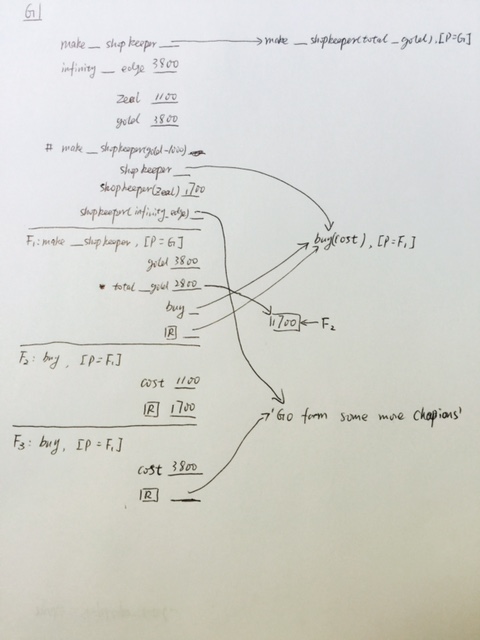 G1
make_shopkeeper make_shopkeeper(total_gold), [P=G]
infinity_edge 3800
zeal 1100
gold 3800
# make_shopkeeper(gold-1000)
shopkeeper
shopkeeper(zeal) 1700
shopkeeper(infinity_edge)
buy(cost), [P=F1]
F1: make_shopkeeper, [P=G]
gold 3800
total_gold 2800
buy
1700 F2
R
F2: buy, [P=F1]
cost 1100
R 1700
'Go farm some more chapions'
F3: buy, [P=F1]
cost 3800
R